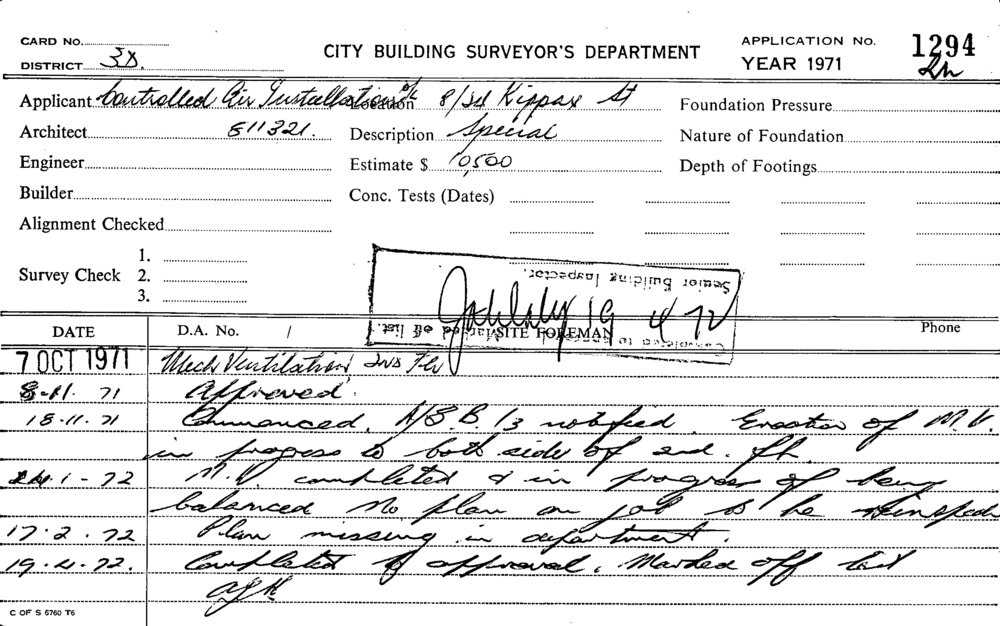 CARD No.
DISTRICT 3D.
CITY BUILDING SURVEYOR'S DEPARTMENT
APPLICATION No. 1294
YEAR 1971
Applicant Controlled Air Installations P/L Location 8/34 Kippax St
Foundation Pressure
Architect 811321. Description Special
Nature of Foundation
Engineer Estimate $ 10,500
Depth of Footings
Builder Conc. Tests (Dates)
Alignment Checked
Survey Check 1.
2.
3.
Completed to approval. Marked off list.
19 4 72
Senior Building Inspector.
DATE D.A. No. / SITE FOREMAN Phone
7 OCT 1971 Mech Ventilation 2nd Flr
8.11.71 Approved.
18.11.71 Commenced. N/S.B. 13 notified. Erection of M.V.
in progress to both side of 2nd. flr.
24.1-72 M.V completed & in progress of being
balanced No plan on job to be
17.2.72 Plan missing in department.
19.4.72. Completed to approval. Marked off list
C OF S 6760 T6